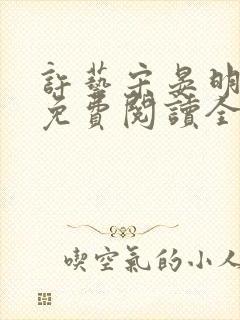 許藝宋晏明
免費閱讀全
喫空氣的小人